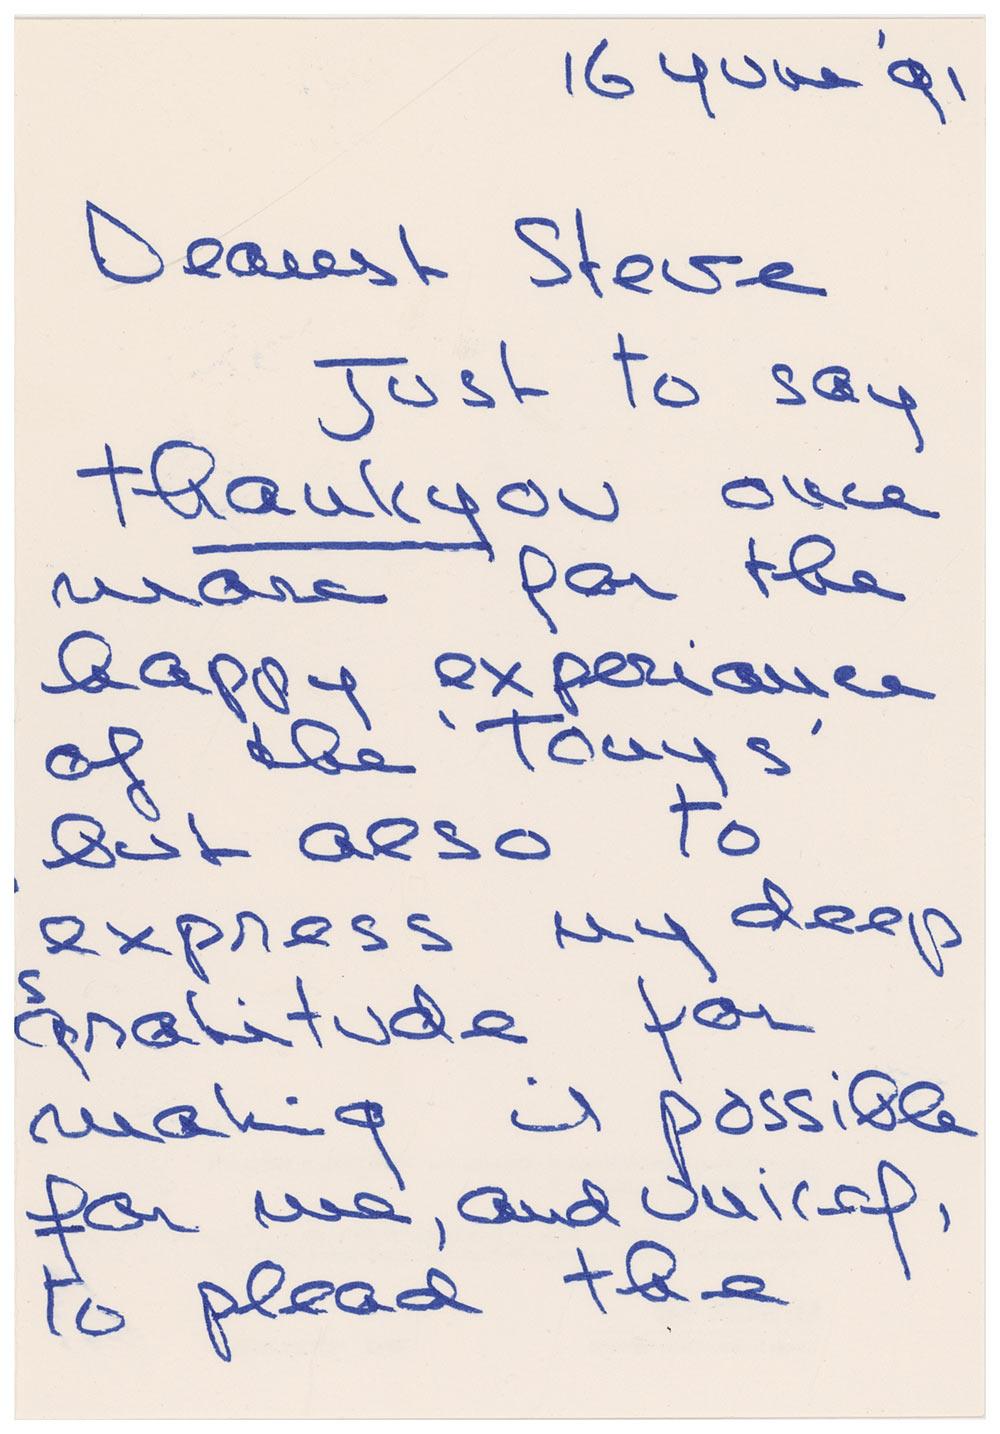 16 June '91
Dearest Steve
Just to say
thankyou once
more for the
happy experiance
of the 'Tonys'
but also to
express my deep
gratitude for
making it possible
for me, and Unicef,
to plead the